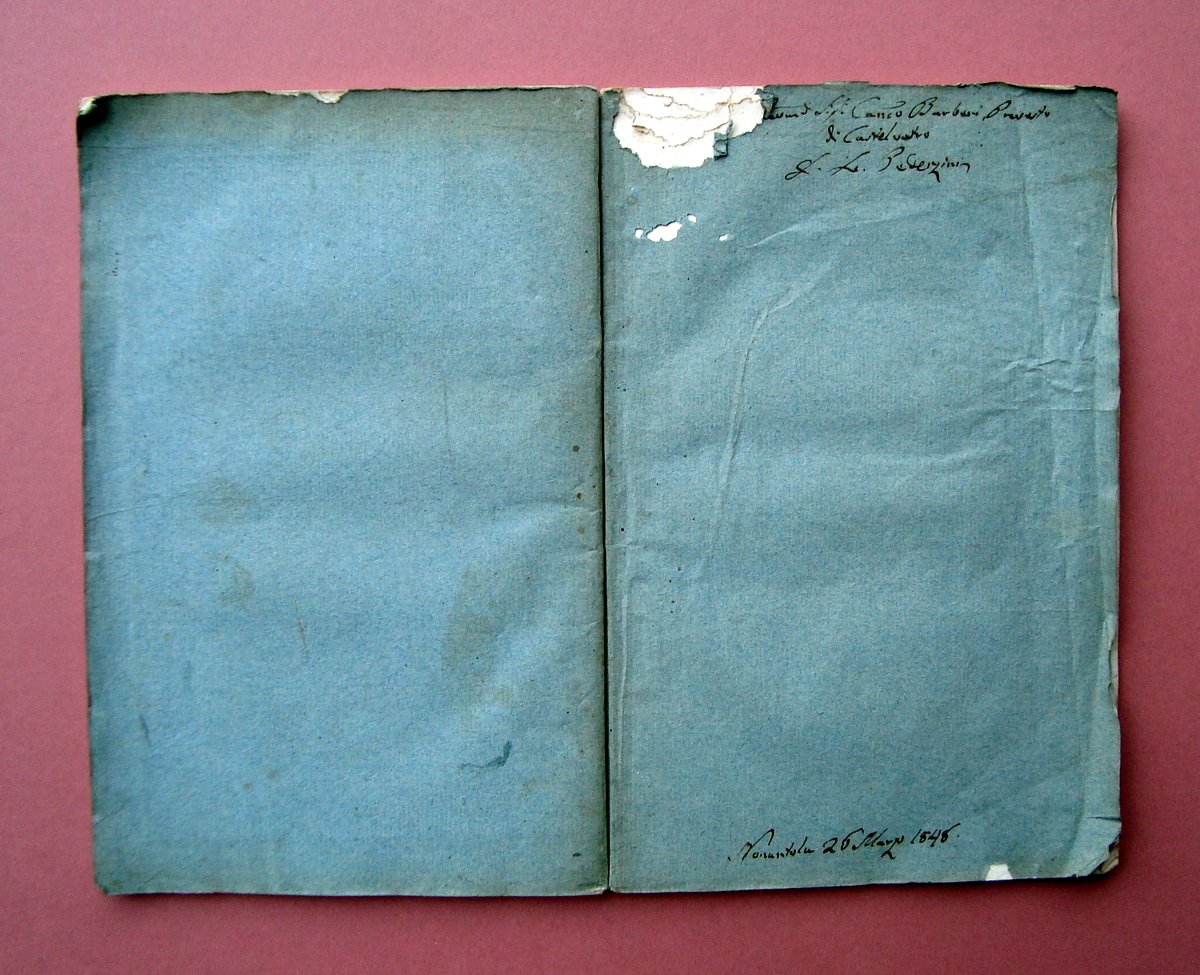 Canco Barberi Prevosto
di Castelvetro
Pederzini
Nonantola 26 Marzo 1846